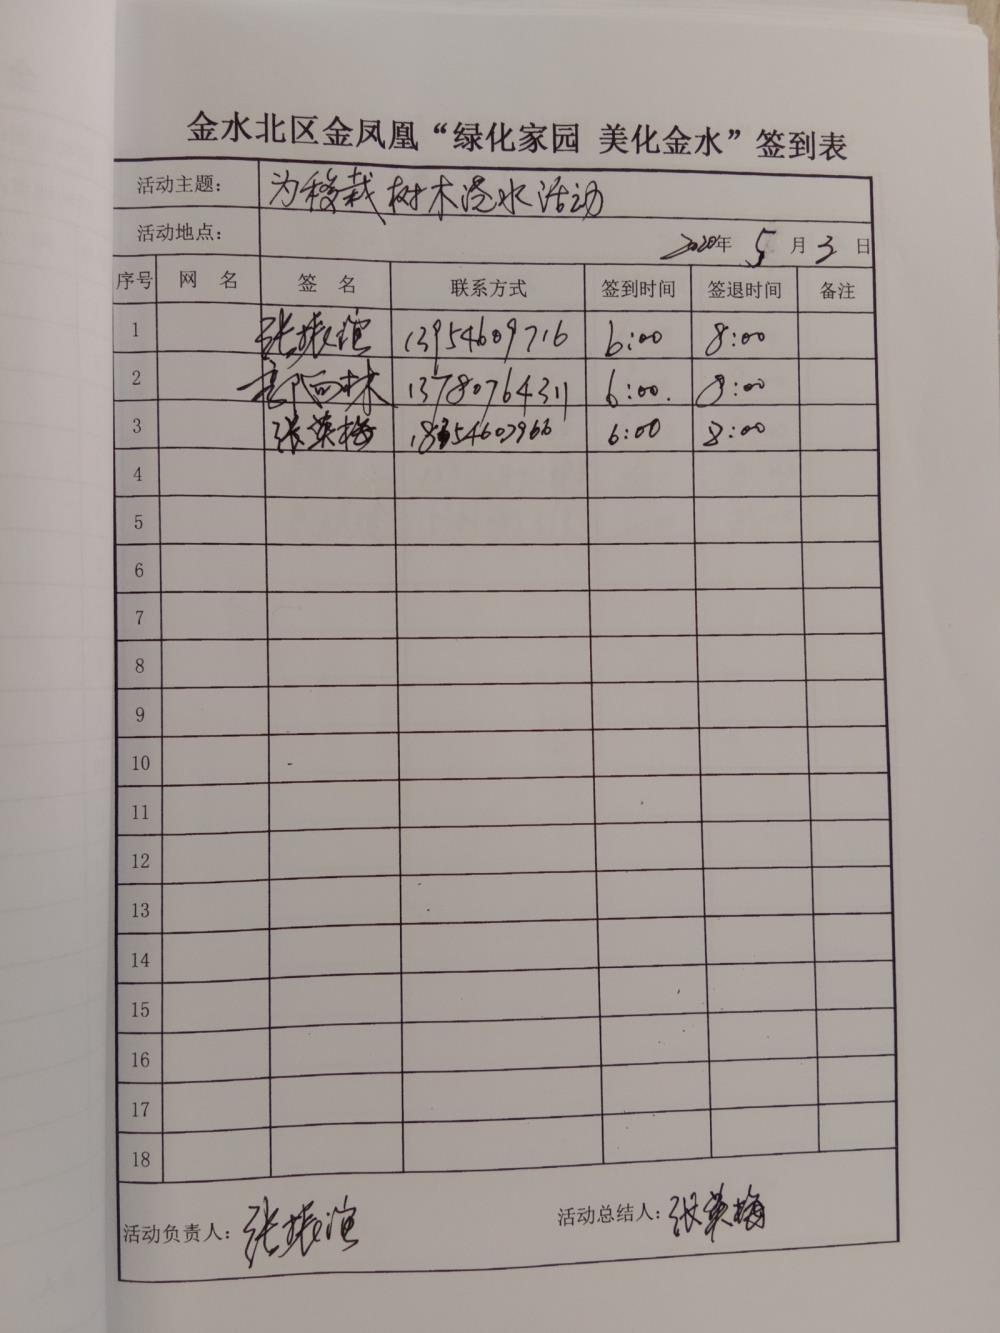 金水北区金凤凰“绿化家园 美化金水”签到表
活动主题: 为移栽树木浇水活动
活动地点:
2020年 5 月 3 日
序号 网 名 签 名 联系方式 签到时间 签退时间 备注
1 张振谊 13954609716 6:00 8:00
2 13780764311 6:00 8:00
3 张英梅 6:00 8:00
4
5
6
7
8
9
10
11
12
13
14
15
16
17
18
活动负责人: 张振谊 活动总结人: 张英梅